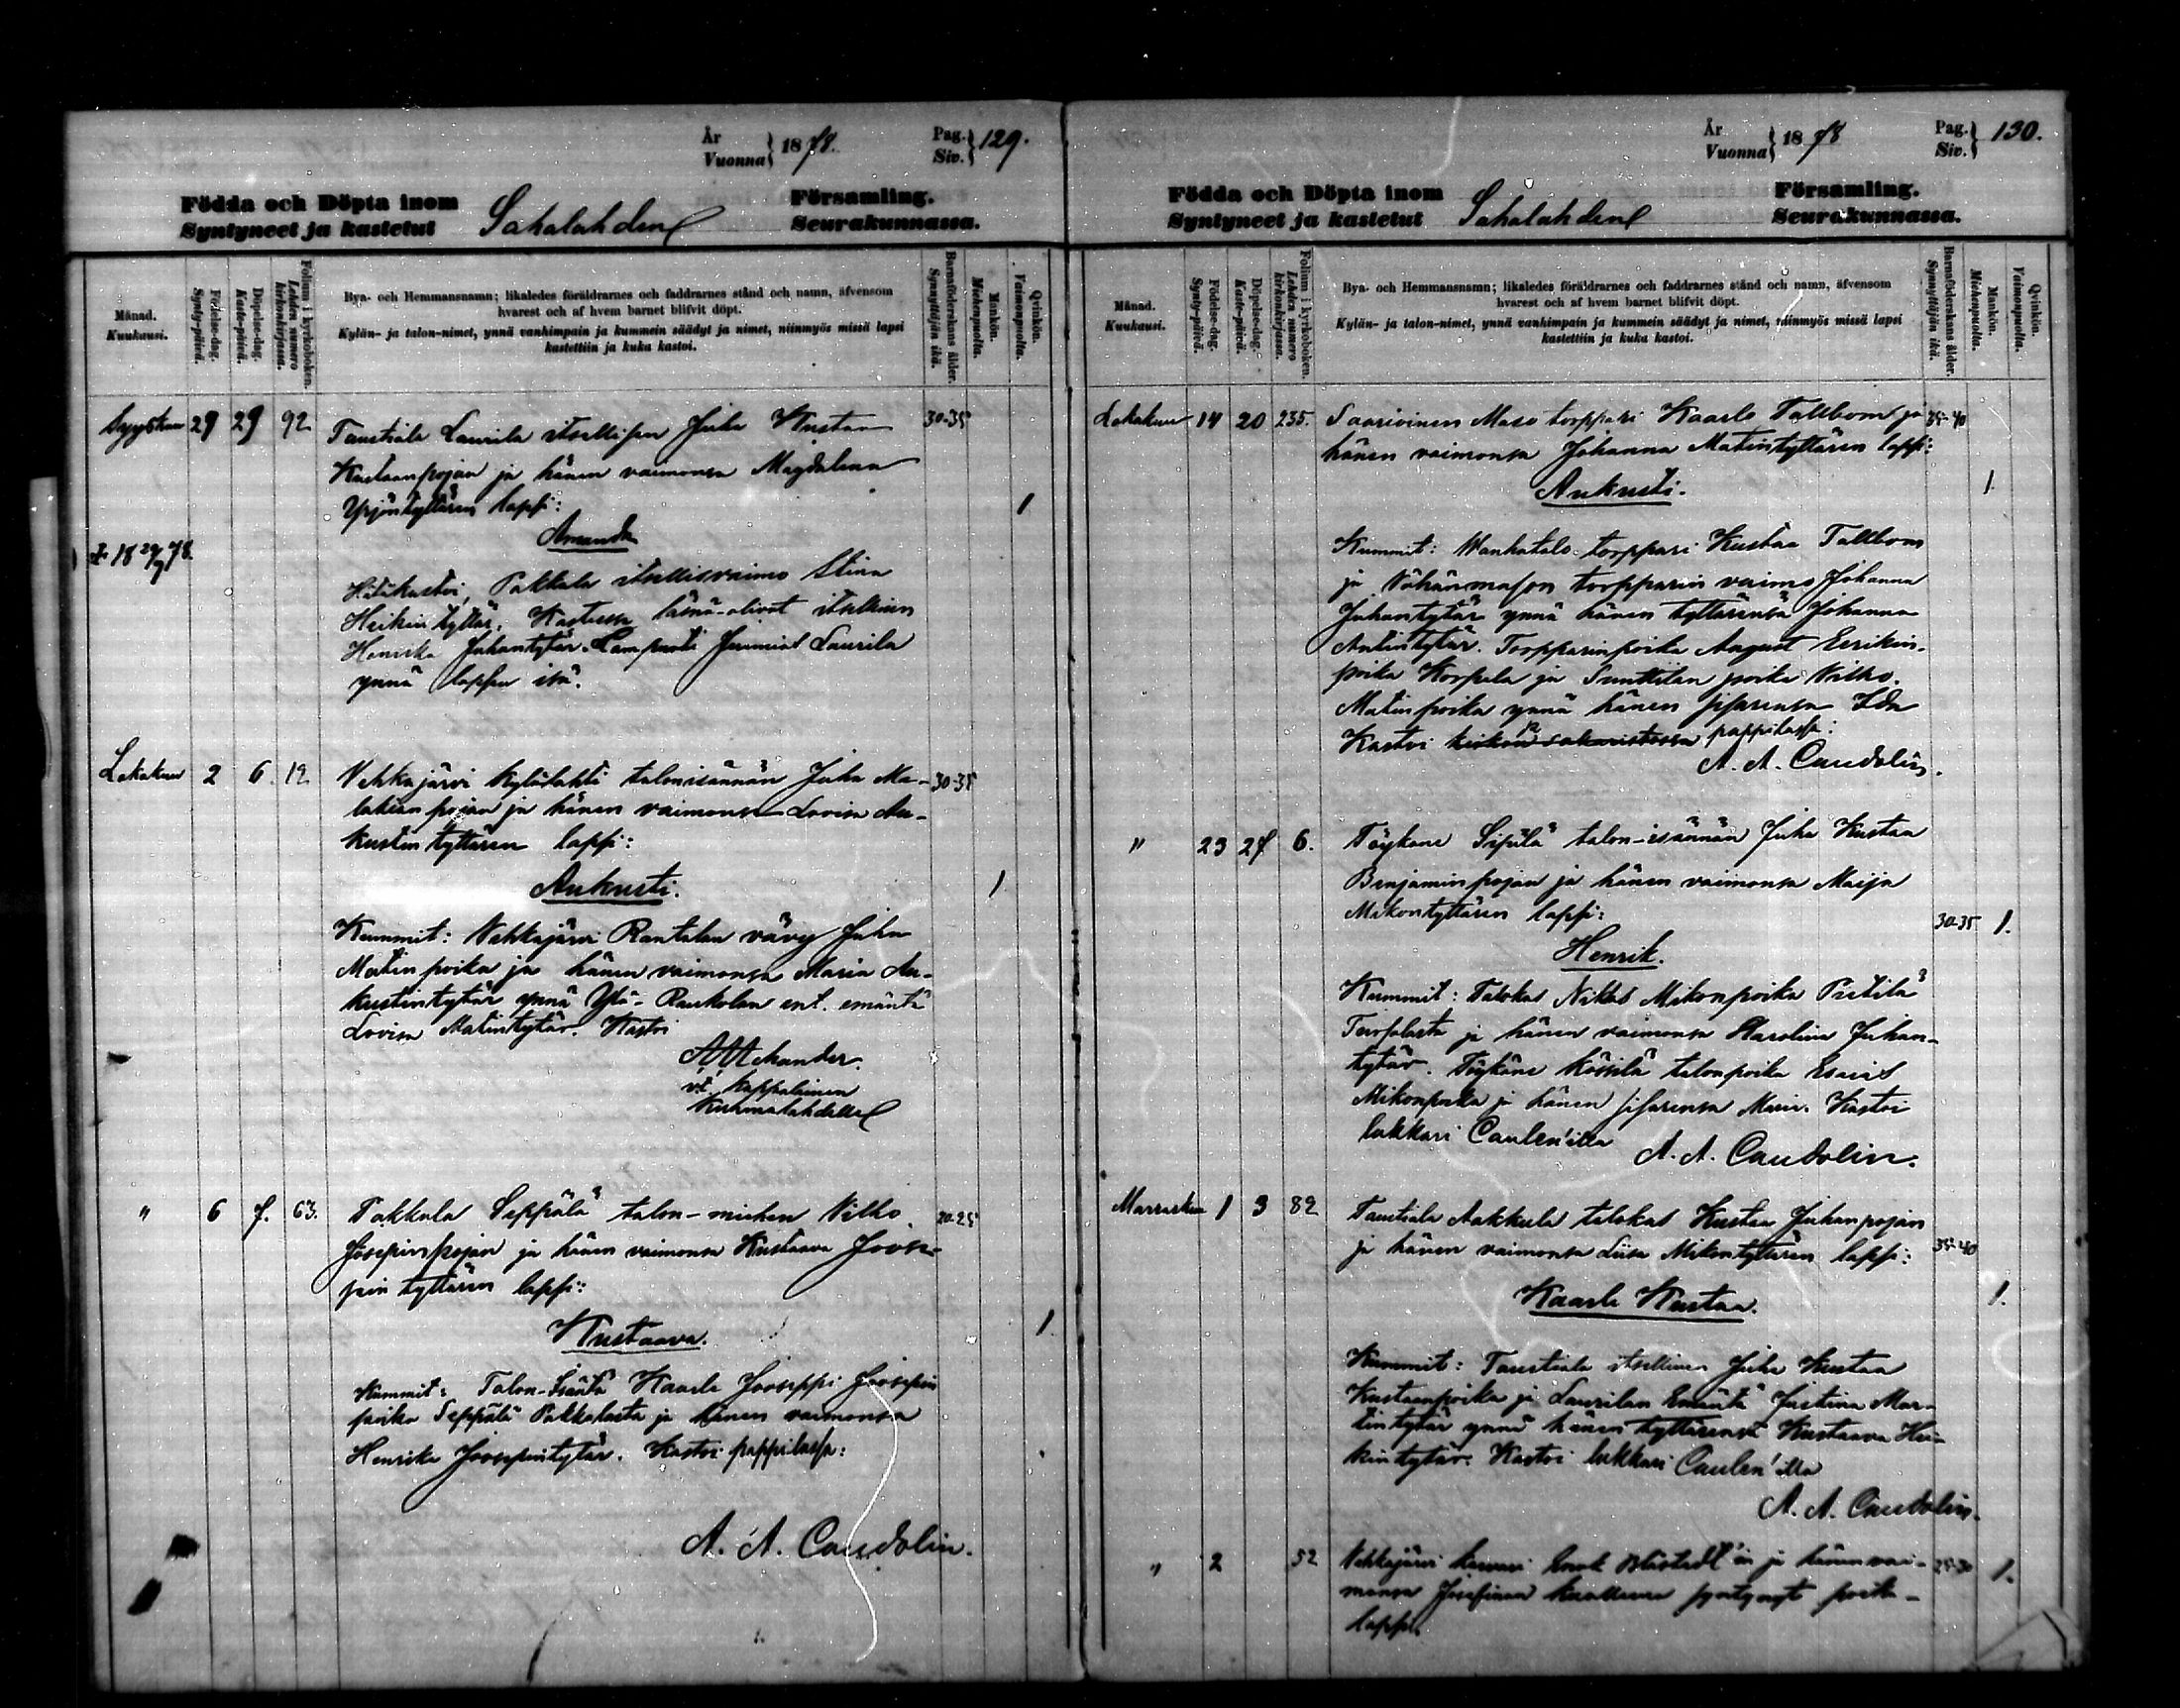 År
Vuonna } 1878.
Pag.
Siv. } 129.
Födda och Döpta inom
Syntyneet ja kastetut
Sahalahden
Församling.
Seurakunnassa.
Månad.
Kuukausi.
Födelse-dag.
Synty-päivä.
Döpelse-dag.
Kaste-päivä.
Folium i kyrkoboken.
Lehden numero kirkonkirjassa.
Bya- och Hemmansnamn; likaledes föräldrarnes och faddrarnes stånd och namn, äfvensom
hvarest och af hvem barnet blifvit döpt.
Kylän- ja talon-nimet, ynnä vanhimpain ja kummein säädyt ja nimet, niinmyös missä lapsi
kastettiin ja kuka kastoi.
Barnaföderskans ålder.
Synnyttäjän ikä.
Mankön.
Miehenpuolta.
Qvinkön.
Vaimonpuolta.
Syyskuu 29 29 92 Taustiala Laurila itsellisen Juha Kustaa 30-35
Kustaanpojan ja hänen vaimonsa Magdalena
Yrjöntyttären lapsi: 1
Amanda
Hätäkastoi, Pakkala itsellisvaimo Stina
Heikintytär. Kasteessa läsnä-olivat itsellinen
Henrika Juhantytär. Lampuoti Jeremias Laurila
ynnä lapsen isä.
Lokakuu 2 6. 12 Vehkajärvi Kylälahti talonisännän Juha Ma- 30-35
lakianpojan ja hänen vaimonsa Lovisa Au-
kustintyttären lapsi:
Aukusti. 1
Kummit: Vehkajärvi Rantalan vävy Juha
Matinpoika ja hänen vaimonsa Maria Au-
kustintytär ynnä Ylä-Raukolan ent. emäntä
Lovisa Matintytär. Kastoi
v.t. kappalainen
Kuhmalahdella
" 6 7. 63. Pakkala Seppälä talon-miehen Vilho 20-25
Josepinpojan ja hänen vaimonsa Kustaava Joose-
pin tyttären lapsi:
Kustaava. 1.
Kummit: Talon-Isäntä Kaarle Jooseppi Joosepin
poika Seppälä Pakkalasta ja hänen vaimonsa
Henrika Joosepintytär. Kastoi pappilassa:
A. A. Caudolin.
År
Vuonna } 1878
Pag.
Siv. } 130.
Födda och Döpta inom
Syntyneet ja kastetut
Sahalahden
Församling.
Seurakunnassa.
Månad.
Kuukausi.
Födelse-dag.
Synty-päivä.
Döpelse-dag.
Kaste-päivä.
Folium i kyrkoboken.
Lehden numero kirkonkirjassa.
Bya- och Hemmansnamn; likaledes föräldrarnes och faddrarnes stånd och namn, äfvensom
hvarest och af hvem barnet blifvit döpt.
Kylän- ja talon-nimet, ynnä vanhimpain ja kummein säädyt ja nimet, niinmyös missä lapsi
kastettiin ja kuka kastoi.
Barnaföderskans ålder.
Synnyttäjän ikä.
Mankön.
Miehenpuolta.
Qvinkön.
Vaimonpuolta.
Lokakuu 14 20 235. Saarioinen Maso torppari Kaarle Tallbom ja 35-40
hänen vaimonsa Johanna Matintyttären lapsi:
Aukusti. 1.
Kummit: Wanhatalo torppari Kustaa Tallbom
ja Vähänmason torpparin vaimo Johanna
Juhantytär ynnä hänen tyttärensä Johanna
Antintytär. Torpparinpoika August Eerikin-
poika Korpela ja Sunttilan poika Vilho
Matinpoika ynnä hänen sisarensa Ida
Kastoi kirkon sakaristossa pappilassa:
A. A. Caudolin.
" 23 27 6. Töykänä Sipilä talon-isännän Juha Kustaa
Benjaminpojan ja hänen vaimonsa Maija
Mikontyttären lapsi: 30-35 1.
Henrik.
Kummit: Talokas Niklas Mikonpoika Pietilä
ja hänen vaimonsa Karolina Juhan-
tytär. Töykänä Kössilä talonpoika Esaias
Mikonpoika ja hänen sisarensa Maria. Kastoi
lukkari Caulen'illa A. A. Caudolin.
Marraskuu 1 3 82 Taustiala Aakkula talokas Kustaa Juhanpojan
ja hänen vaimonsa Liisa Mikontyttären lapsi: 35-40
Kaarle Kustaa. 1.
Kummit: Taustiala itsellinen Juha Kustaa
Kustaanpoika ja Laurilan Emäntä Justina Mar-
tintytär ynnä hänen tyttärensä Kustaava Hei-
kintytär. Kastoi lukkari Caulen'illa
A. A. Caudolin.
" 2 52 Vehkajärvi ja hänen vai- 25-30 1.
monsa Josefinan kuolleena syntynyt poika-
lapsi.